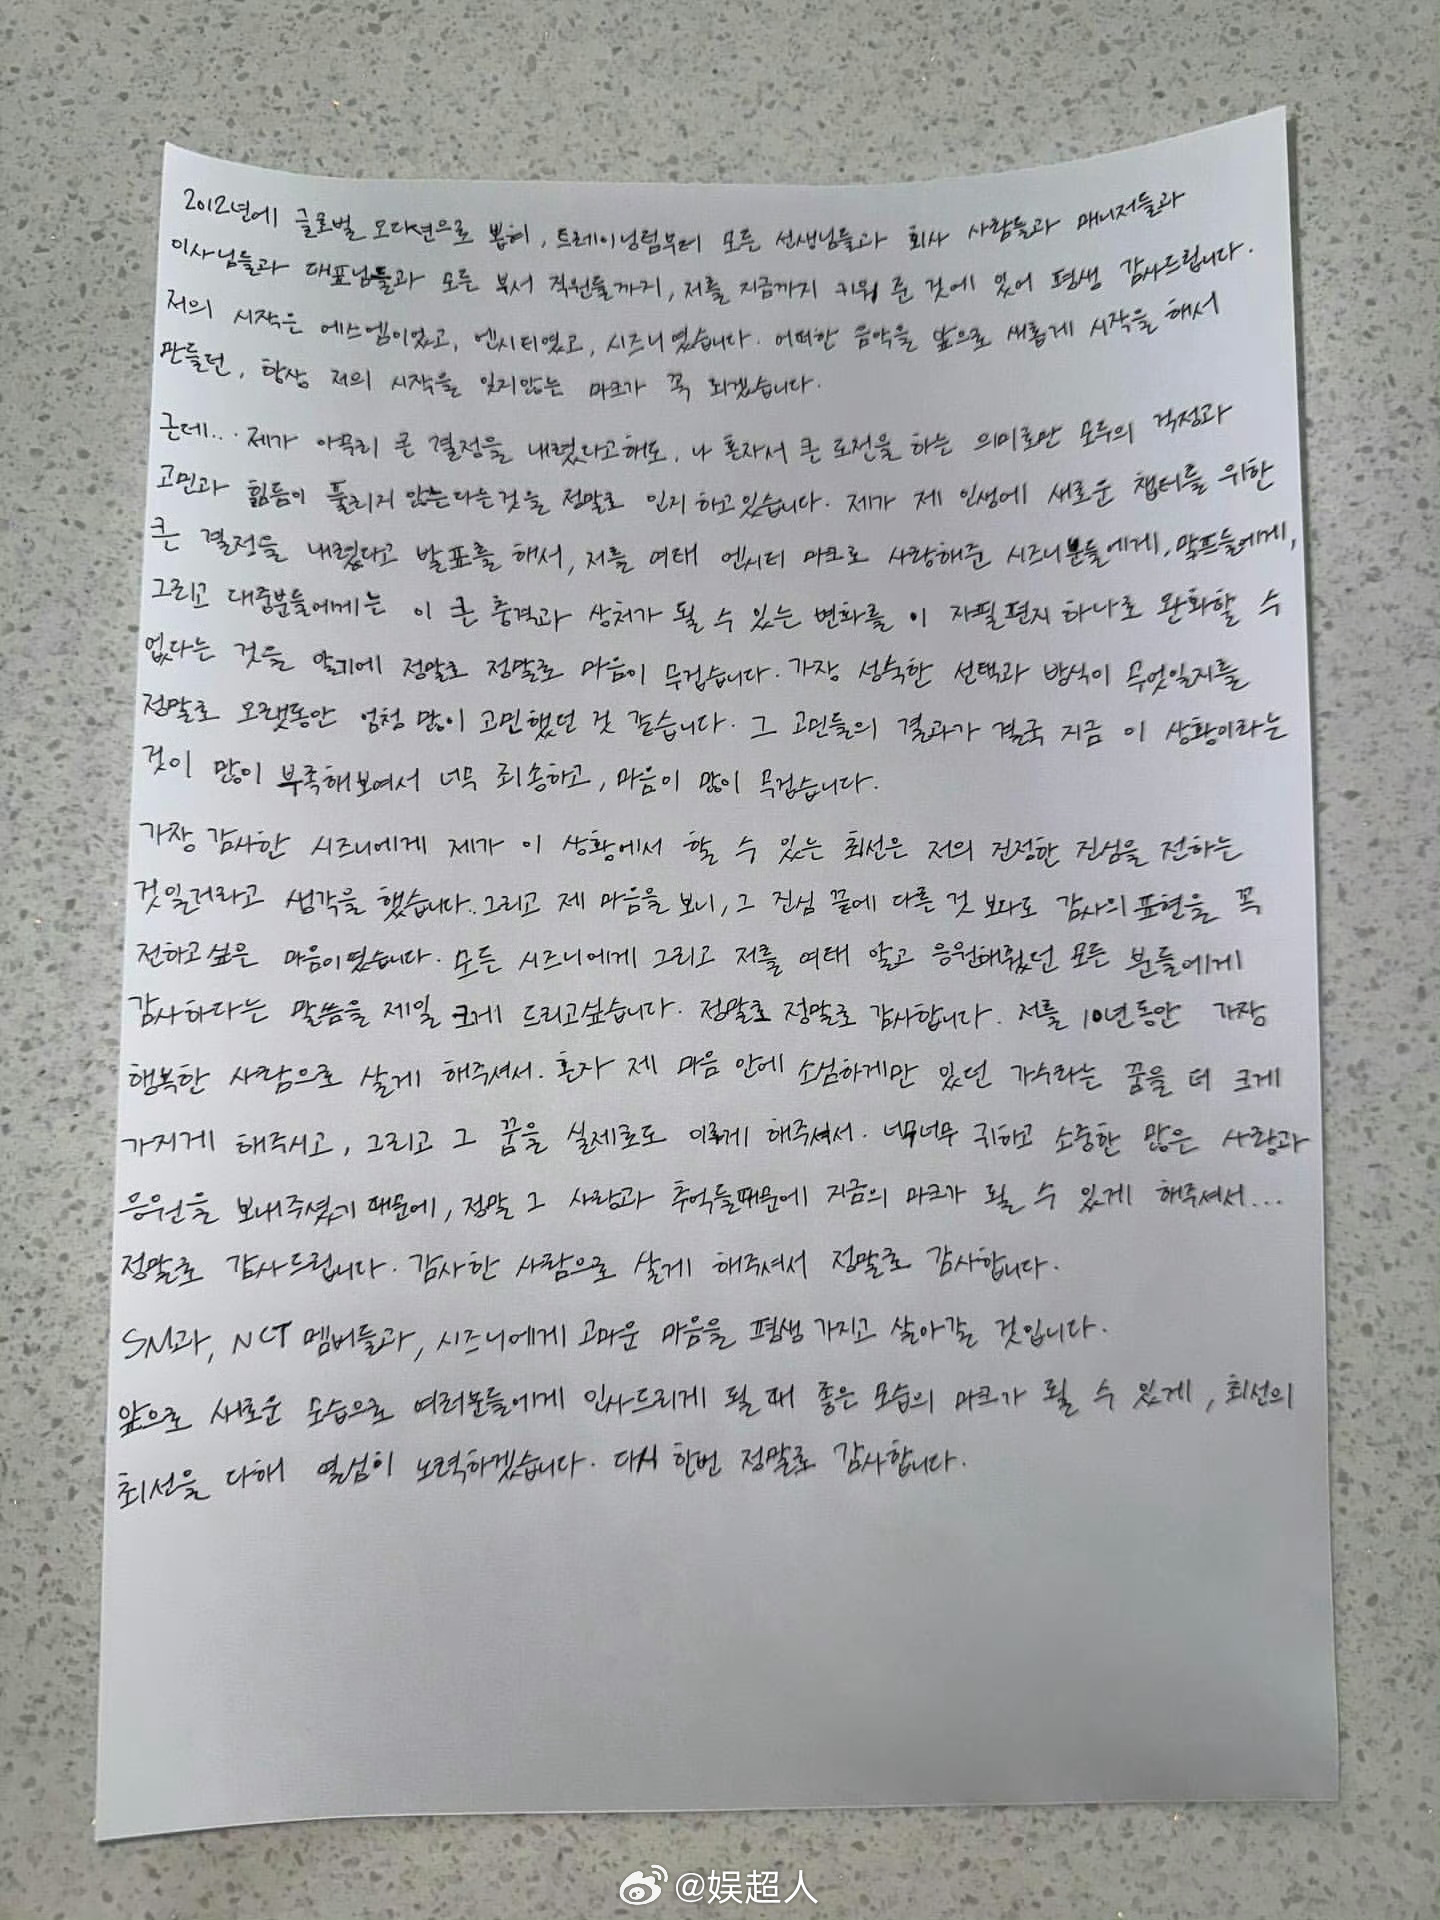 2012년에 글로벌 오디션으로 뽑혀, 트레이닝팀부터 모든 선생님들과 회사 사람들과 매니저들과
이사님들과 대표님들과 모든 부서 직원들까지, 저를 지금까지 키워 준 것에 있어 평생 감사드립니다.
저의 시작은 에스엠이었고, 엔시티였고, 시즈니였습니다. 어떠한 음악을 앞으로 새롭게 시작을 해서
만들던, 항상 저의 시작을 잊지않는 마크가 꼭 되겠습니다.
근데... 제가 아무리 큰 결정을 내렸다고해도, 나 혼자서 큰 도전을 하는 의미로만 모두의 걱정과
고민과 힘듬이 풀리지 않는다는것을 정말로 인지하고있습니다. 제가 제 인생에 새로운 챕터를 위한
큰 결정을 내렸다고 발표를 해서, 저를 여태 엔시티 마크로 사랑해준 시즈니분들에게, 말프들에게,
그리고 대중분들에게는 이 큰 충격과 상처가 될 수 있는 변화를 이 자필편지 하나로 완화할 수
없다는 것을 알기에 정말로 정말로 마음이 무겁습니다. 가장 성숙한 선택과 방식이 무엇일지를
정말로 오랫동안 엄청 많이 고민했던 것 같습니다. 그 고민들의 결과가 결국 지금 이 상황이라는
것이 많이 부족해보여서 너무 죄송하고, 마음이 많이 무겁습니다.
가장 감사한 시즈니에게 제가 이 상황에서 할 수 있는 최선은 저의 진정한 진심을 전하는
것일거라고 생각을 했습니다. 그리고 제 마음을 보니, 그 진심 끝에 다른 것 보다도 감사의 표현을 꼭
전하고싶은 마음이였습니다. 모든 시즈니에게 그리고 저를 여태 알고 응원해줬던 모든 분들에게
감사하다는 말씀을 제일 크게 드리고싶습니다. 정말로 정말로 감사합니다. 저를 10년동안 가장
행복한 사람으로 살게 해주셔서. 혼자 제 마음 안에 소심하게만 있던 가수라는 꿈을 더 크게
가지게 해주시고, 그리고 그 꿈을 실제로도 이루게 해주셔서. 너무너무 귀하고 소중한 많은 사랑과
응원을 보내주셨기 때문에, 정말 그 사랑과 추억들때문에 지금의 마크가 될 수 있게 해주셔서...
정말로 감사드립니다. 감사한 사람으로 살게 해주셔서 정말로 감사합니다.
SM과, NCT 멤버들과, 시즈니에게 고마운 마음을 평생 가지고 살아갈 것입니다.
앞으로 새로운 모습으로 여러분들에게 인사드리게 될 때 좋은 모습의 마크가 될 수 있게, 최선의
최선을 다해 열심히 노력하겠습니다. 다시 한번 정말로 감사합니다.
@娱超人